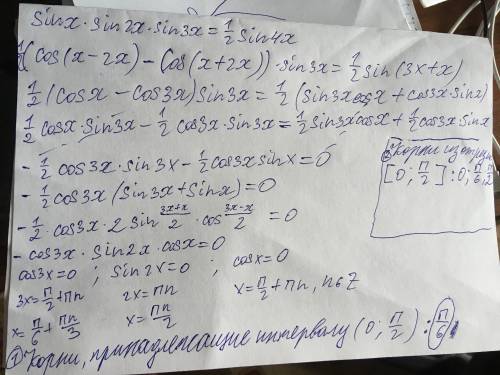 sinx · sin2x · sin3x = 1/2 sin4x
1/2 (cos(x-2x) - cos(x+2x)) · sin3x = 1/2 sin(3x+x)
1/2 (cosx - cos3x) sin3x = 1/2 (sin3x cosx + cos3x sinx)
1/2 cosx · sin3x - 1/2 cos3x · sin3x = 1/2 sin3x cosx + 1/2 cos3x sinx
- 1/2 cos3x · sin3x - 1/2 cos3x sinx = 0
- 1/2 cos3x (sin3x + sinx) = 0
- 1/2 · cos3x · 2 sin (3x+x)/2 · cos (3x-x)/2 = 0
- cos3x · sin2x · cosx = 0
cos3x = 0 ; sin2x = 0 ; cosx = 0
3x = π/2 + πn 2x = πn x = π/2 + πn, n∈Z
x = π/6 + πn/3 x = πn/2
① Корни, принадлежащие интервалу (0; π/2) : π/6
② Корни из отрезка
[0; π/2] : 0; π/6; π/2